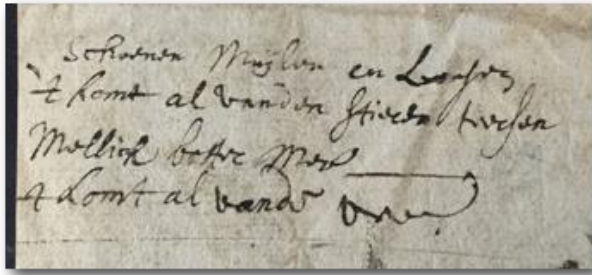 Schoenen Muijlen en Leersen
't komt al vanden stieren
Mellick botter
't komt al vande